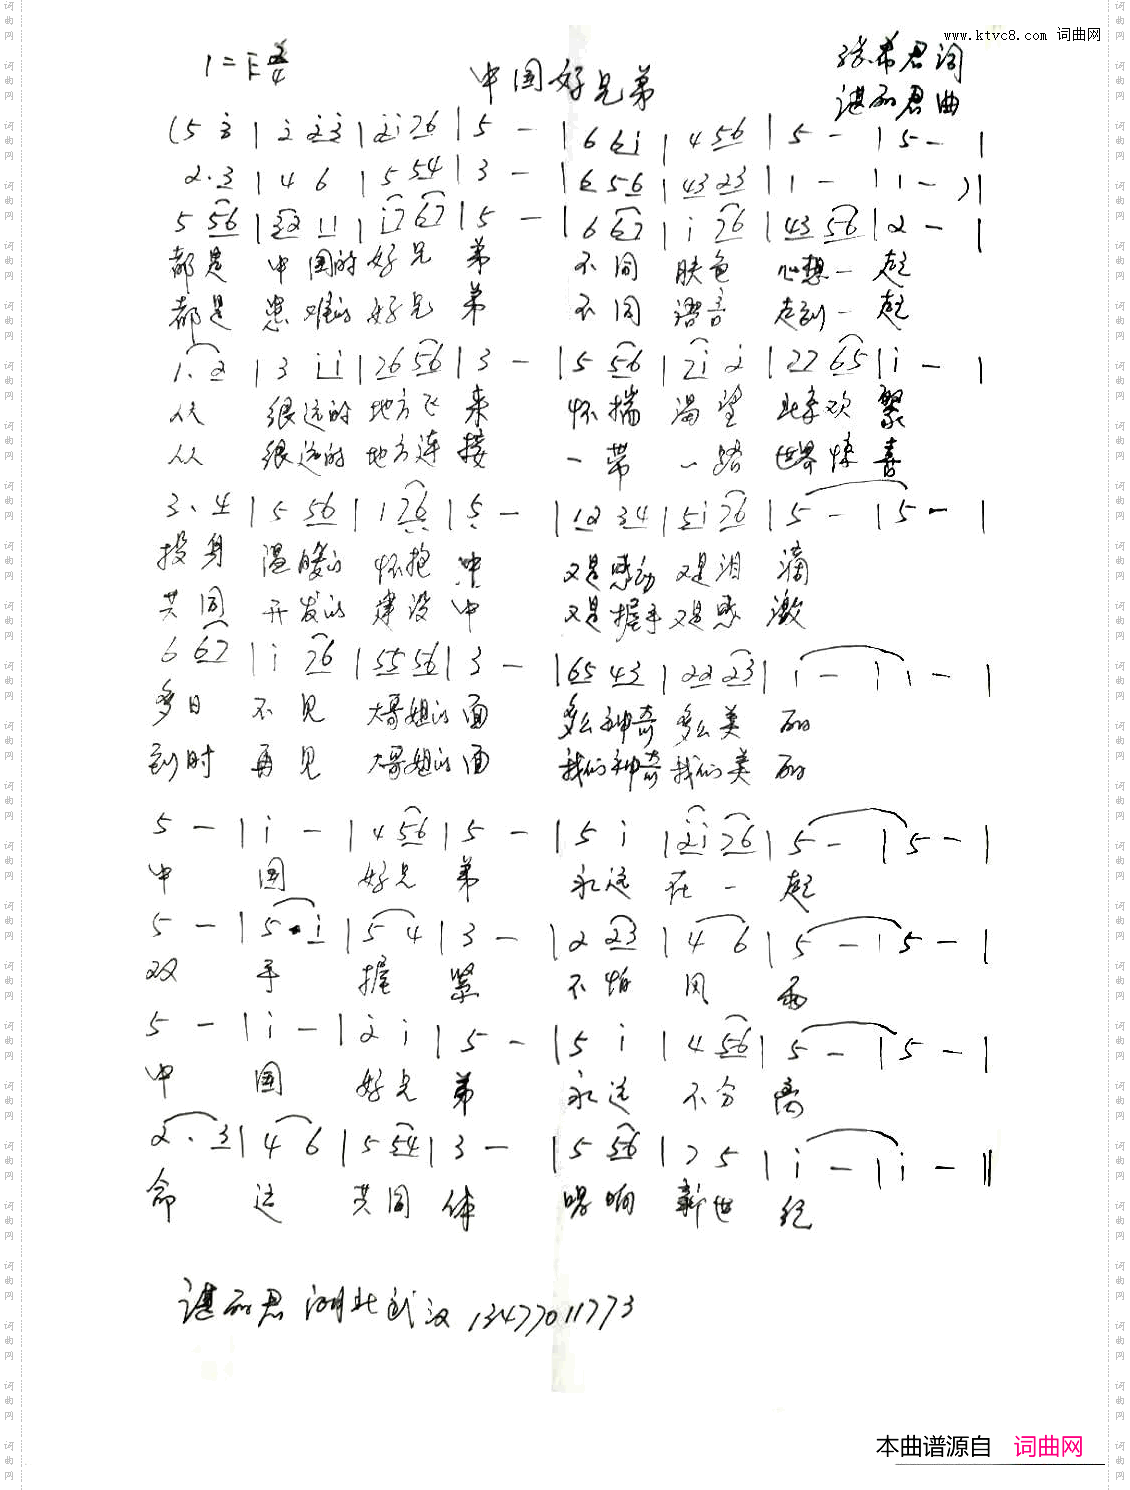 www.ktvc8.com 词曲网
1=E 2/4
中国好兄弟
张希君词
谌丽君曲
(5 3 | 2 2 3 | 2 i 2 6 | 5 — | 6 6 i | 4 5 6 | 5 — | 5 — |
2·3 | 4 6 | 5 5 4 | 3 — | 6 5 6 | 4 3 2 3 | 1 — | 1 — ) |
5 5 6 | 3 2 1 1 | i 7 6 7 | 5 — | 6 6 7 | i 7 6 | 4 3 5 6 | 2 — |
都是 中国的好兄弟 不同 肤色 心想一起
都是 患难的好兄弟 不同 语言 走到一起
1·2 | 3 i i | 2 6 5 6 | 3 — | 5 5 6 | 7 i 2 | 2 7 6 5 | i — |
从 很远的地方飞来 怀揣 渴望 赴京欢聚
从 很远的地方连接 一带 一路 世界惊喜
3·4 | 5 5 6 | 1 7 6 | 5 — | 1 2 3 4 | 5 i 7 6 | 5 — | 5 — |
投身 温暖的 怀抱中 又是感动 又是泪滴
共同 开发的 建设中 又是握手 又是感激
6 6 7 | i 7 6 | 5 5 5 6 | 3 — | 6 5 4 3 | 2 2 2 3 | i — | i — |
多日 不见 大哥姐的面 多么神奇 多么美丽
到时 再见 大哥姐的面 我们神奇 我们美丽
5 — | i — | 4 5 6 | 5 — | 5 i | 2 i 7 6 | 5 — | 5 — |
中 国 好兄弟 永远 在一起
5 — | 5·i | 5 4 | 3 — | 2 2 3 | 4 6 | 5 — | 5 — |
双 手 握 紧 不怕 风 雨
5 — | i — | 2 i | 5 — | 5 i | 4 5 6 | 5 — | 5 — |
中 国 好兄弟 永远 不分离
2·3 | 4 6 | 5 5 4 | 3 — | 5 5 6 | 7 5 | i — | i — ‖
命 运 共同体 唱响 新世纪
谌丽君 湖北武汉 13477011773
本曲谱源自 词曲网